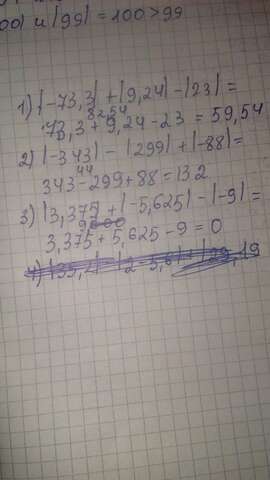 00| и |99| = 100 > 99
1) |-73,3| + |9,24| - |23| =
82,54
73,3 + 9,24 - 23 = 59,54
2) |-343| - |299| + |-88| =
44
343 - 299 + 88 = 132
3) |3,375| + |-5,625| - |-9| =
9000
3,375 + 5,625 - 9 = 0